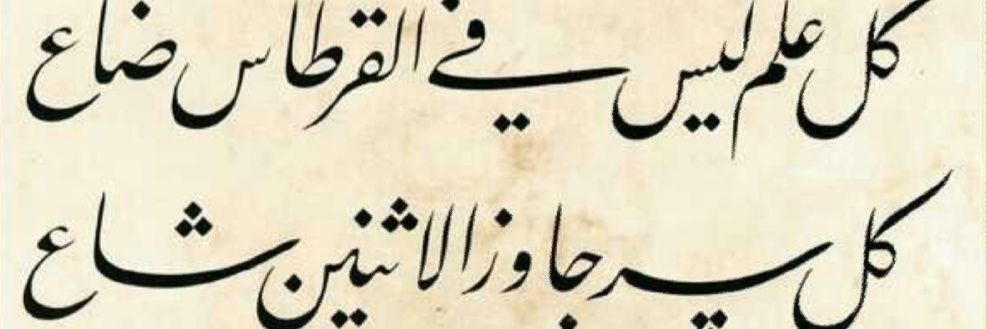 كل علم ليس في القرطاس ضاع
كل سر جاوز الاثنين شاع